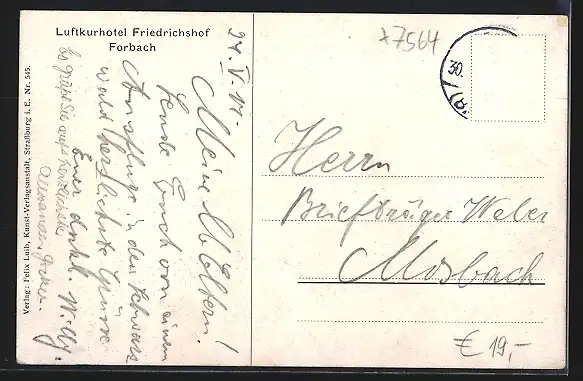 Luftkurhotel Friedrichshof
Forbach
24. V. 14.
Meine l. Eltern!
Sende Euch von einem
Ausfluge in den Schwarz
wald herzlichste Grüsse
Euer dankb. Willy.
Es grüßt Sie aufs herzlichste
Verlag: Felix Luib, Kunst-Verlagsanstalt, Straßburg i. E. Nr. 545.
x7564
30.
Herrn
Briefträger Weber
Mosbach
€ 19,-